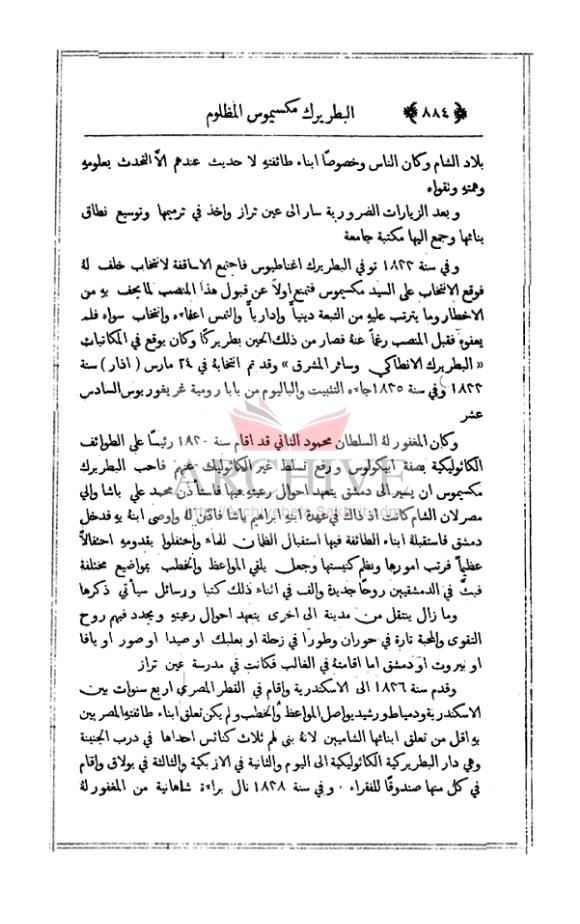 ﴿٨٨٤﴾ البطريرك مكسيموس المظلوم
بلاد الشام وكان الناس وخصوصًا ابناء طائفتهِ لا حديث عندهم الاَّ التحدث بعلومهِ
وهمتهِ ونقواه
وبعد الزيارات الضرورية سار الى عين تراز واخذ في ترميمها وتوسيع نطاق
بنائها وجمع اليها مكتبة جامعة
وفي سنة ١٨٣٣ توفي البطريرك اغناطيوس فاجتمع الاساقفة لانتخاب خلف لهُ
فوقع الانتخاب على السيد مكسيموس فتمنع اولاً عن قبول هذا المنصب لما يحف بهِ من
الاخطار وما يترتب عليهِ من التبعة دينياً وإدارياً والتمس اعفاءه وانتخاب سواه فلم
يعفوه فقبل المنصب رغماً عنهُ فصار من ذلك الحين بطريركًا وكان يوقع في المكاتبات
« البطريرك الانطاكي وسائر المشرق » وقد تم انتخابهُ في ٢٤ مارس ( اذار ) سنة
١٨٣٣ وفي سنة ١٨٣٥ جاءه التثبيت والباليوم من بابا رومية غريغوريوس السادس
عشر
وكان المغفور لهُ السلطان محمود الثاني قد اقام سنة ١٨٣٠ رئيسًا على الطوائف
الكاثوليكية بصفة ابيكولوس ورفع تسلط غير الكاثوليك عنهم فاحب البطريرك
مكسيموس ان يسير الى دمشق يتعهد احوال رعيتهِ فيها فاستأذن محمد علي باشا والي
مصر لان الشام كانت اذ ذاك في عهدة ابنهِ ابراهيم باشا فاذن لهُ واوصى ابنهُ بهِ فدخل
دمشق فاستقبلهُ ابناء الطائفة فيها استقبال الظمآن للماء واحتفلوا بقدومهِ احتفالاً
عظيماً فرتب امورها ونظم كنيستها وجعل يلقي المواعظ والخطب بمواضيع مختلفة
فبثَّ في الدمشقيين روحًا جديدة والف في اثناء ذلك كتبا ورسائل سيأتي ذكرها
وما زال ينتقل من مدينة الى اخرى يتعهد احوال رعيتهِ ويجدد فيهم روح
التقوى والمحبة تارة في حوران وطورًا في زحلة او بعلبك او صيدا او صور او يافا
او بيروت او دمشق اما اقامتهُ في الغالب فكانت في مدرسة عين تراز
وقدم سنة ١٨٣٦ الى الاسكندرية واقام في القطر المصري اربع سنوات بين
الاسكندرية ودمياط ورشيد يواصل المواعظ والخطب ولم يكن تعلق ابناء طائفتهِ المصريين
بهِ اقل من تعلق ابنائها الشاميين لانهُ بنى لهم ثلاث كنائس احداها في درب الجنينة
وهي دار البطريركية الكاثوليكية الى اليوم والثانية في الازبكية والثالثة في بولاق واقام
في كل منها صندوقًا للفقراء . وفي سنة ١٨٣٨ نال براءة شاهانية من المغفور لهُ
ARCHIVE